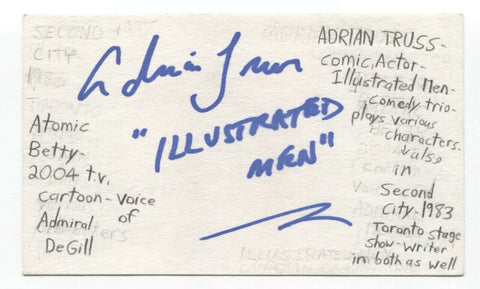 Adrian Truss
"ILLUSTRATED
MEN"
Atomic
Betty-
2004 t.v.
cartoon-voice
of
Admiral
DeGill
ADRIAN TRUSS-
comic, Actor-
Illustrated Men-
comedy trio-
plays various
characters-
also
in
Second
City-1983
Toronto stage
show-writer
in both as well
SECOND
CITY